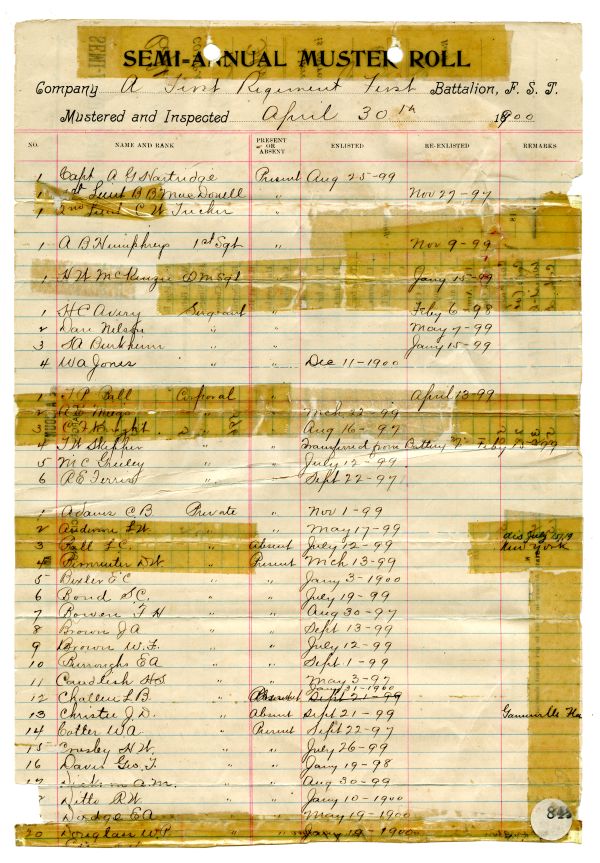 SEMI-ANNUAL MUSTER ROLL
Company A First Regiment First Battalion, F. S. T.
Mustered and Inspected April 30th 1900
NO. NAME AND RANK PRESENT OR ABSENT ENLISTED RE-ENLISTED REMARKS
1 Capt A G Hartridge Present Aug 25-99
1 1st Lieut B B MacDonell " Nov 27-97
1 2nd Lieut C W Tucker "
1 A B Humphreys 1st Sgt " Nov 9-99
1 H W McKenzie Q M Sgt " Jany 15-99
1 H C Avery Sergeant " Feby 6-98
2 Dan Nelson " " May 7-99
3 " " Jany 15-99
4 W A Jones " " Dec 11-1900
1 T P Ball Corporal " April 13-99
2 Meigs " " Mch 22-99
3 C Knight " " Aug 16-97
4 T W Skipper " " Transferred from Battery Feby 15-99
5 M C Greeley " " July 12-99
6 R E Ferris " " Sept 22-97
1 Adams C B Private " Nov 1-99
2 L W " " May 17-99
3 Ball L C " Absent July 12-99 New York
4 D W " Present Mch 13-99
5 Bixler E C " " Jany 3-1900
6 Bond S C " " July 19-99
7 Bowen T H " " Aug 30-97
8 Brown J A " " Sept 13-99
9 Brown W F " " July 12-99
10 Burroughs E A " " Sept 1-99
11 Candlish H S " " May 3-97
12 L B " 31-1900 Sept 21-99
13 Christie J D " Absent Sept 21-99 Gainesville Fla
14 Cotter W A " Present Sept 22-97
15 Crosby H W " " July 26-99
16 Davis Geo T " " Jany 19-98
17 A. M. " " Aug 30-99
Ditto R W " " Jany 10-1900
Dodge E A " " May 19-1900
20 Douglas W P " " Jany 19-1900